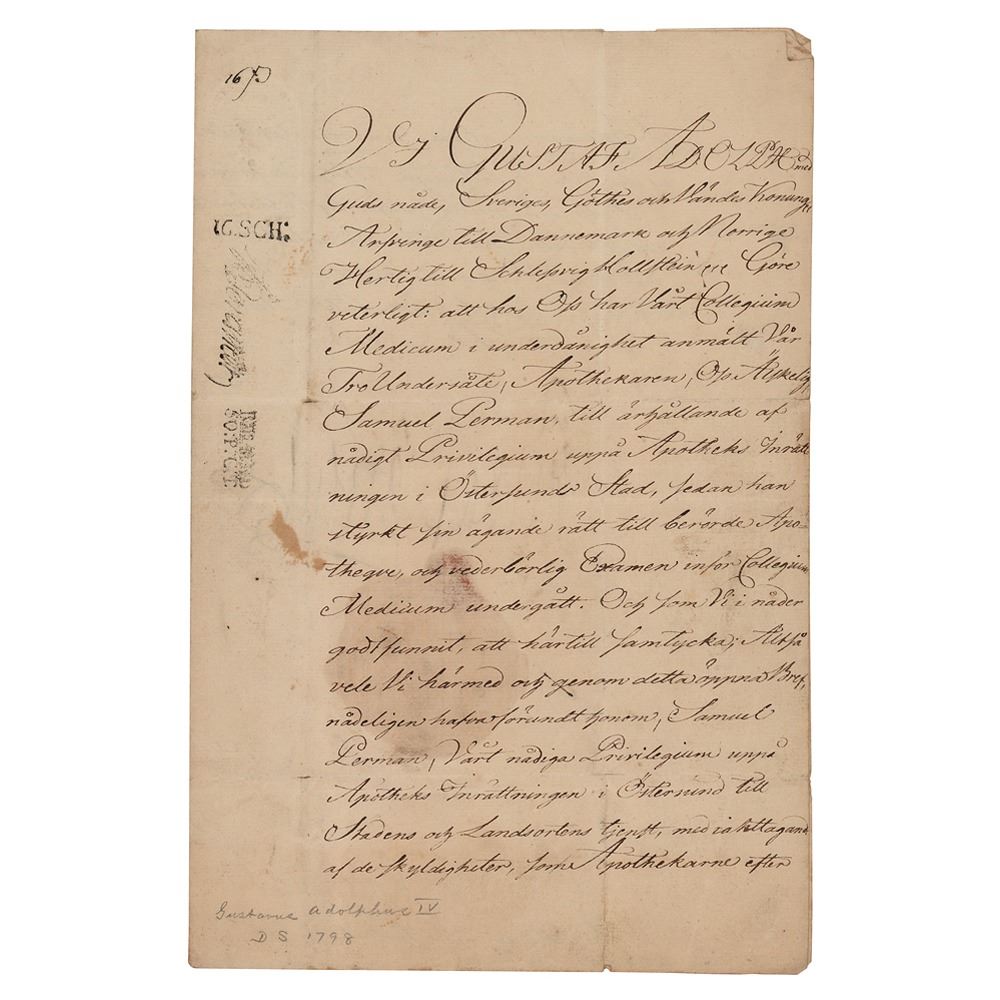 VJ GUSTAF ADOLPH med
Guds nåde, Sveriges, Göthes och Vändes Konung
Arfvinge till Dannemark och Norrige
Hertig till Schlesvig Hollstein Göre
veterligt: att hos Oss har Vårt Collegium
Medicum i underdånighet anmält Vår
Tro Undersåte, Apothekaren, Oss Älskelig
Samuel Perman, till ärhållande af
nådigt Privilegium uppå Apotheks Inrätt
ningen i Östersunds Stad, sedan han
styrkt sin ägande rätt till berörde Apo-
theqve, och vederbörlig Examen inför Collegium
Medicum undergått. Och som Vi i nåder
godtfunnit, att härtill samtycka; Altså
vele Vi härmed och genom detta öppna Bref,
nådeligen hafva förundt honom, Samuel
Perman, Vårt nådiga Privilegium uppå
Apotheks Inrättningen i Östersund till
Stadens och Landsortens tjenst, med iakttagand
af de skyldigheter, som Apothekarne efter
G.SCH:
Gustavus Adolphus IV
D S 1798